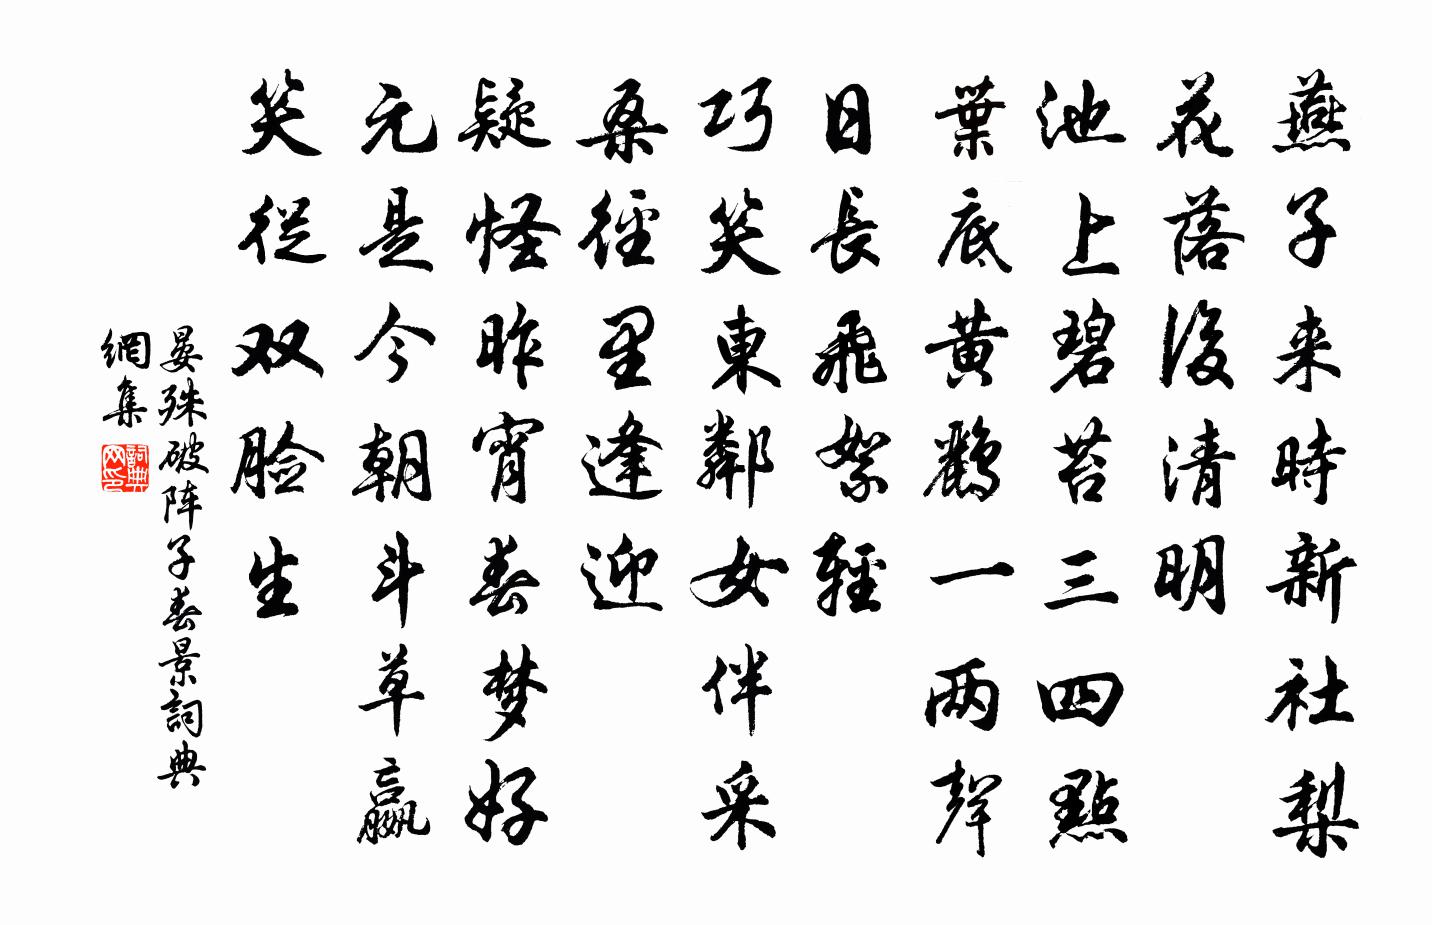 燕子来時新社梨
花落後清明
池上碧苔三四點
葉底黄鸝一两聲
日長飛絮輕
巧笑東鄰女伴采
桑徑里逢迎
疑怪昨宵春梦好
元是今朝斗草赢
笑從双脸生
晏殊破阵子春景詞典
網集
詞典
网印